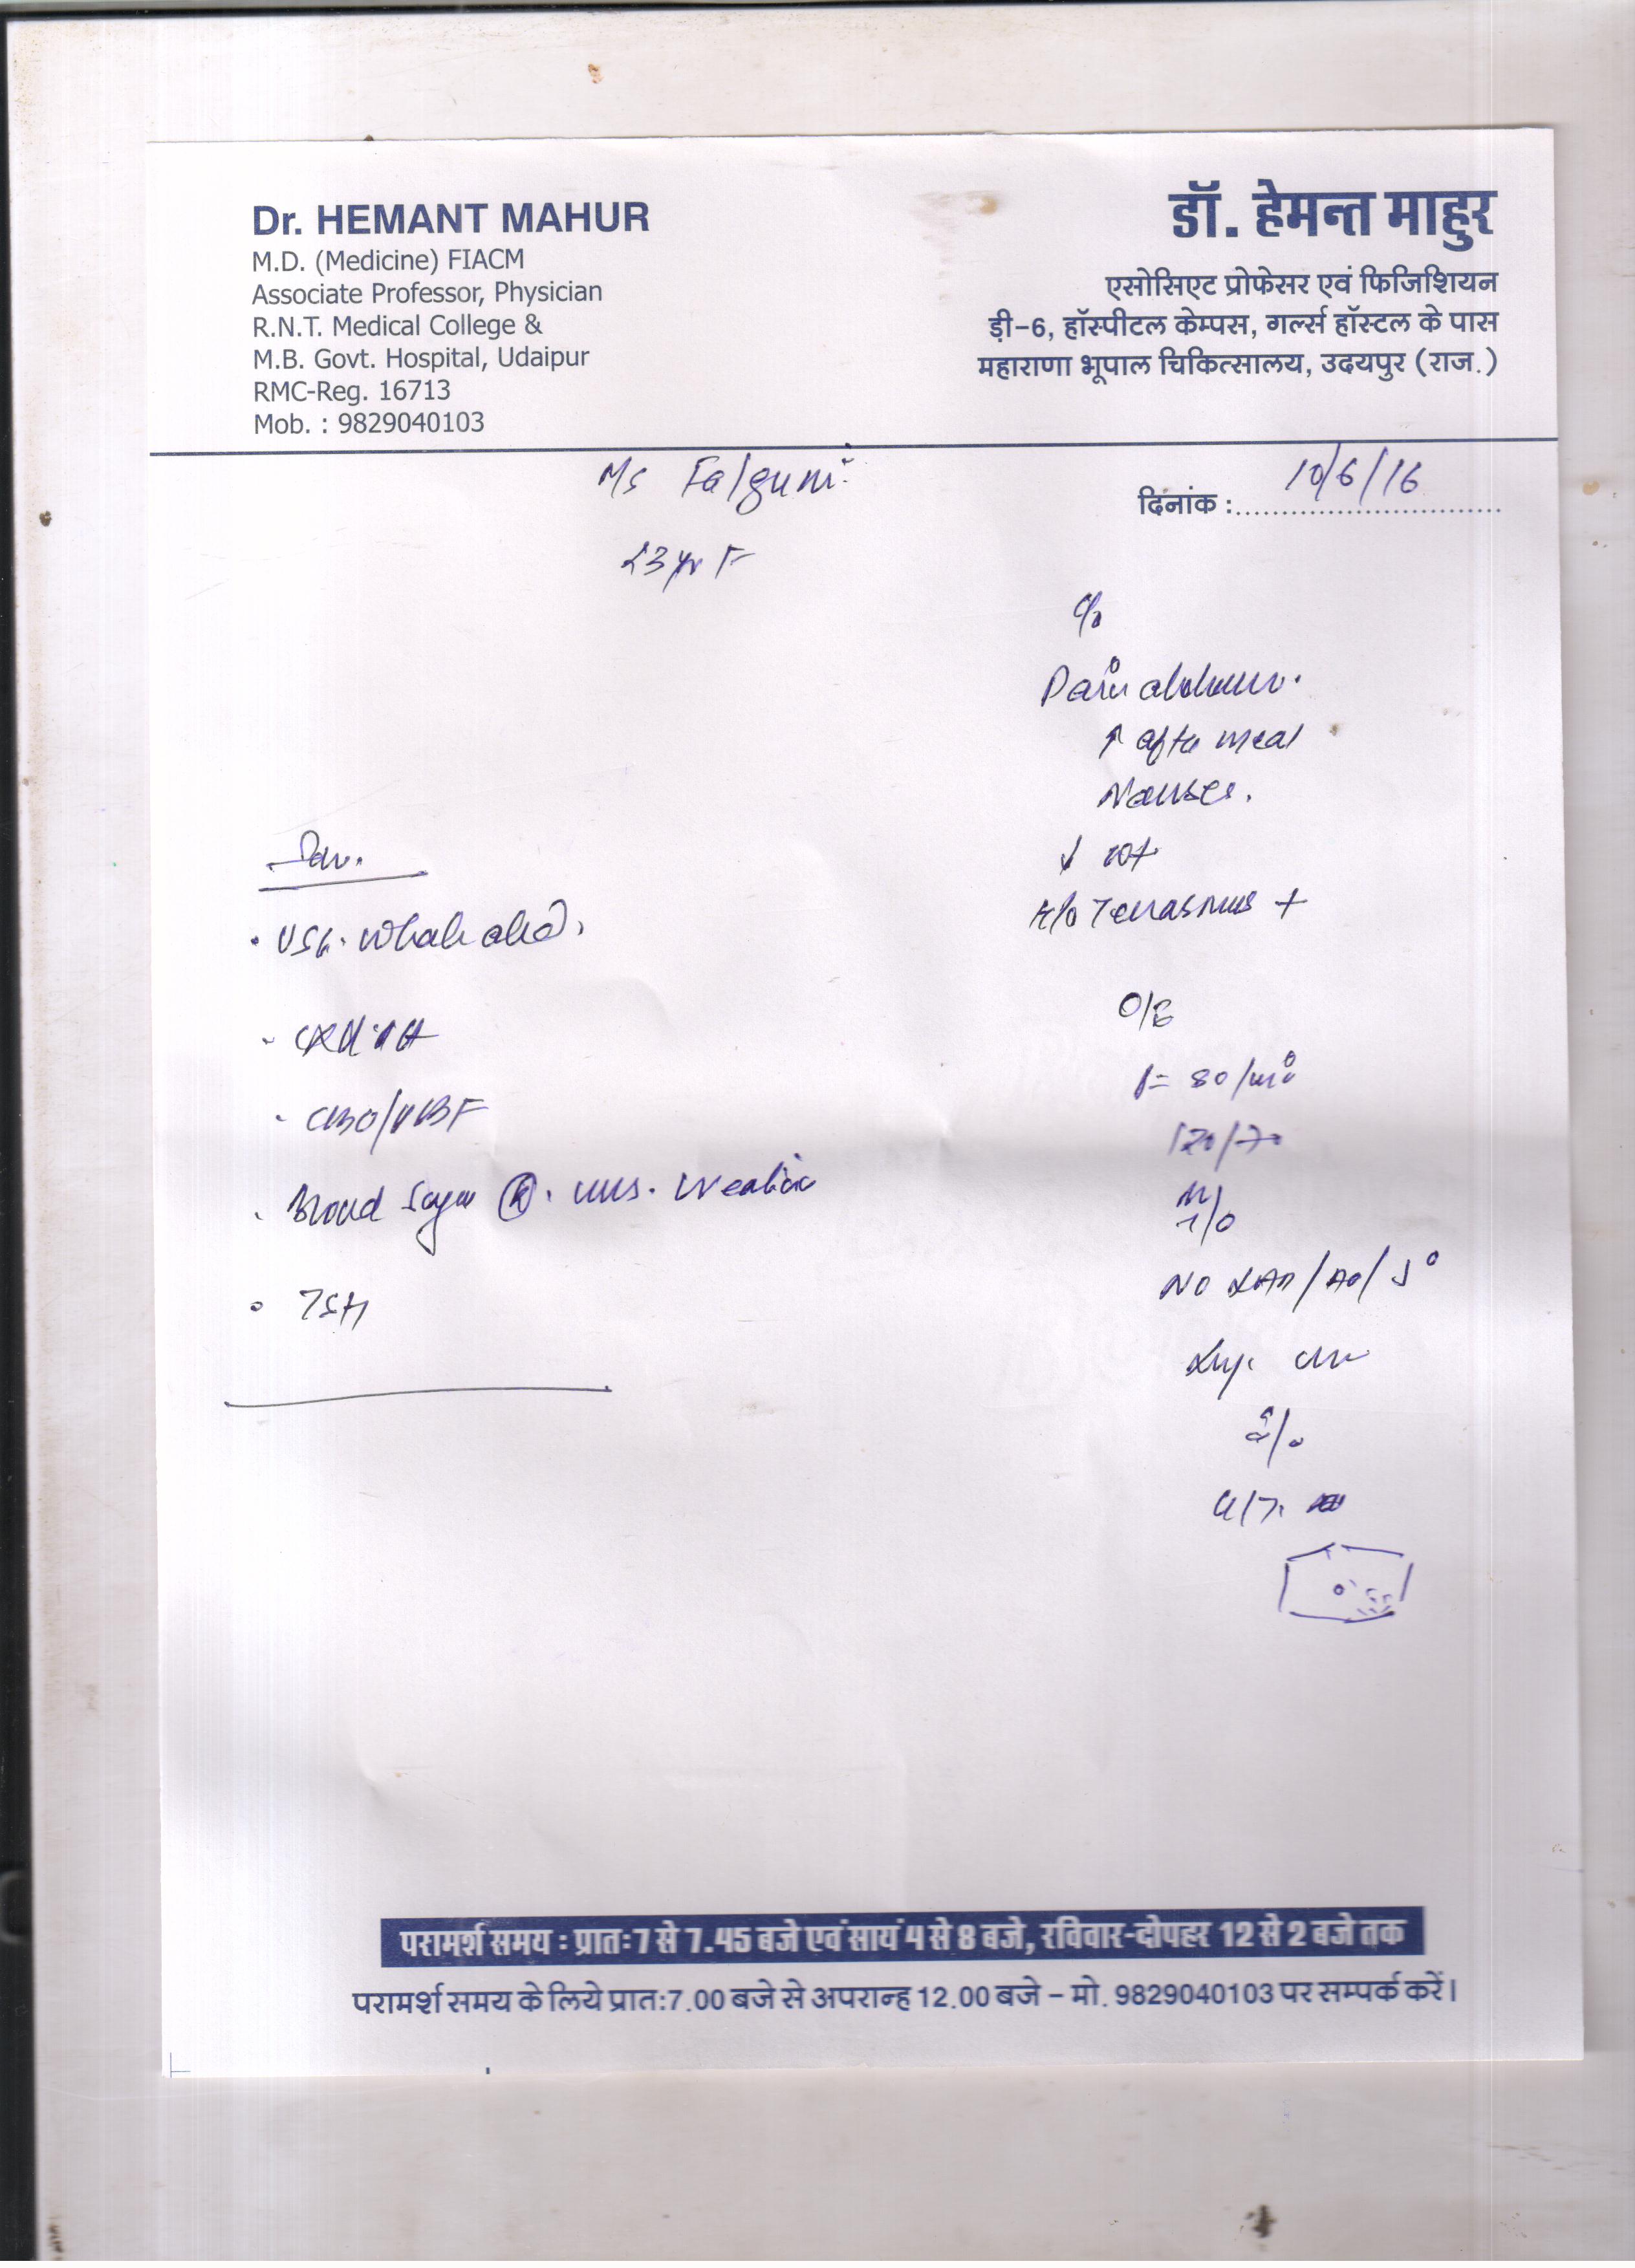 Dr. HEMANT MAHUR
M.D. (Medicine) FIACM
Associate Professor, Physician
R.N.T. Medical College &
M.B. Govt. Hospital, Udaipur
RMC-Reg. 16713
Mob. : 9829040103
डॉ. हेमन्त माहुर
एसोसिएट प्रोफेसर एवं फिजिशियन
ड़ी-6, हॉस्पीटल केम्पस, गर्ल्स हॉस्टल के पास
महाराणा भूपाल चिकित्सालय, उदयपुर (राज.)
Ms Falguni
दिनांक : 10/6/16
23 yr F
c/o
Pain abdomen.
↑ after meal
Nausea.
↓
H/o +
O/E
P= 80/min
120/70
NO
USG. Whole abd.
Blood Sugar (R).
TSH
परामर्श समय : प्रातः7 से 7.45 बजे एवं सायं 4 से 8 बजे, रविवार-दोपहर 12 से 2 बजे तक
परामर्श समय के लिये प्रातः7.00 बजे से अपरान्ह 12.00 बजे – मो. 9829040103 पर सम्पर्क करें।